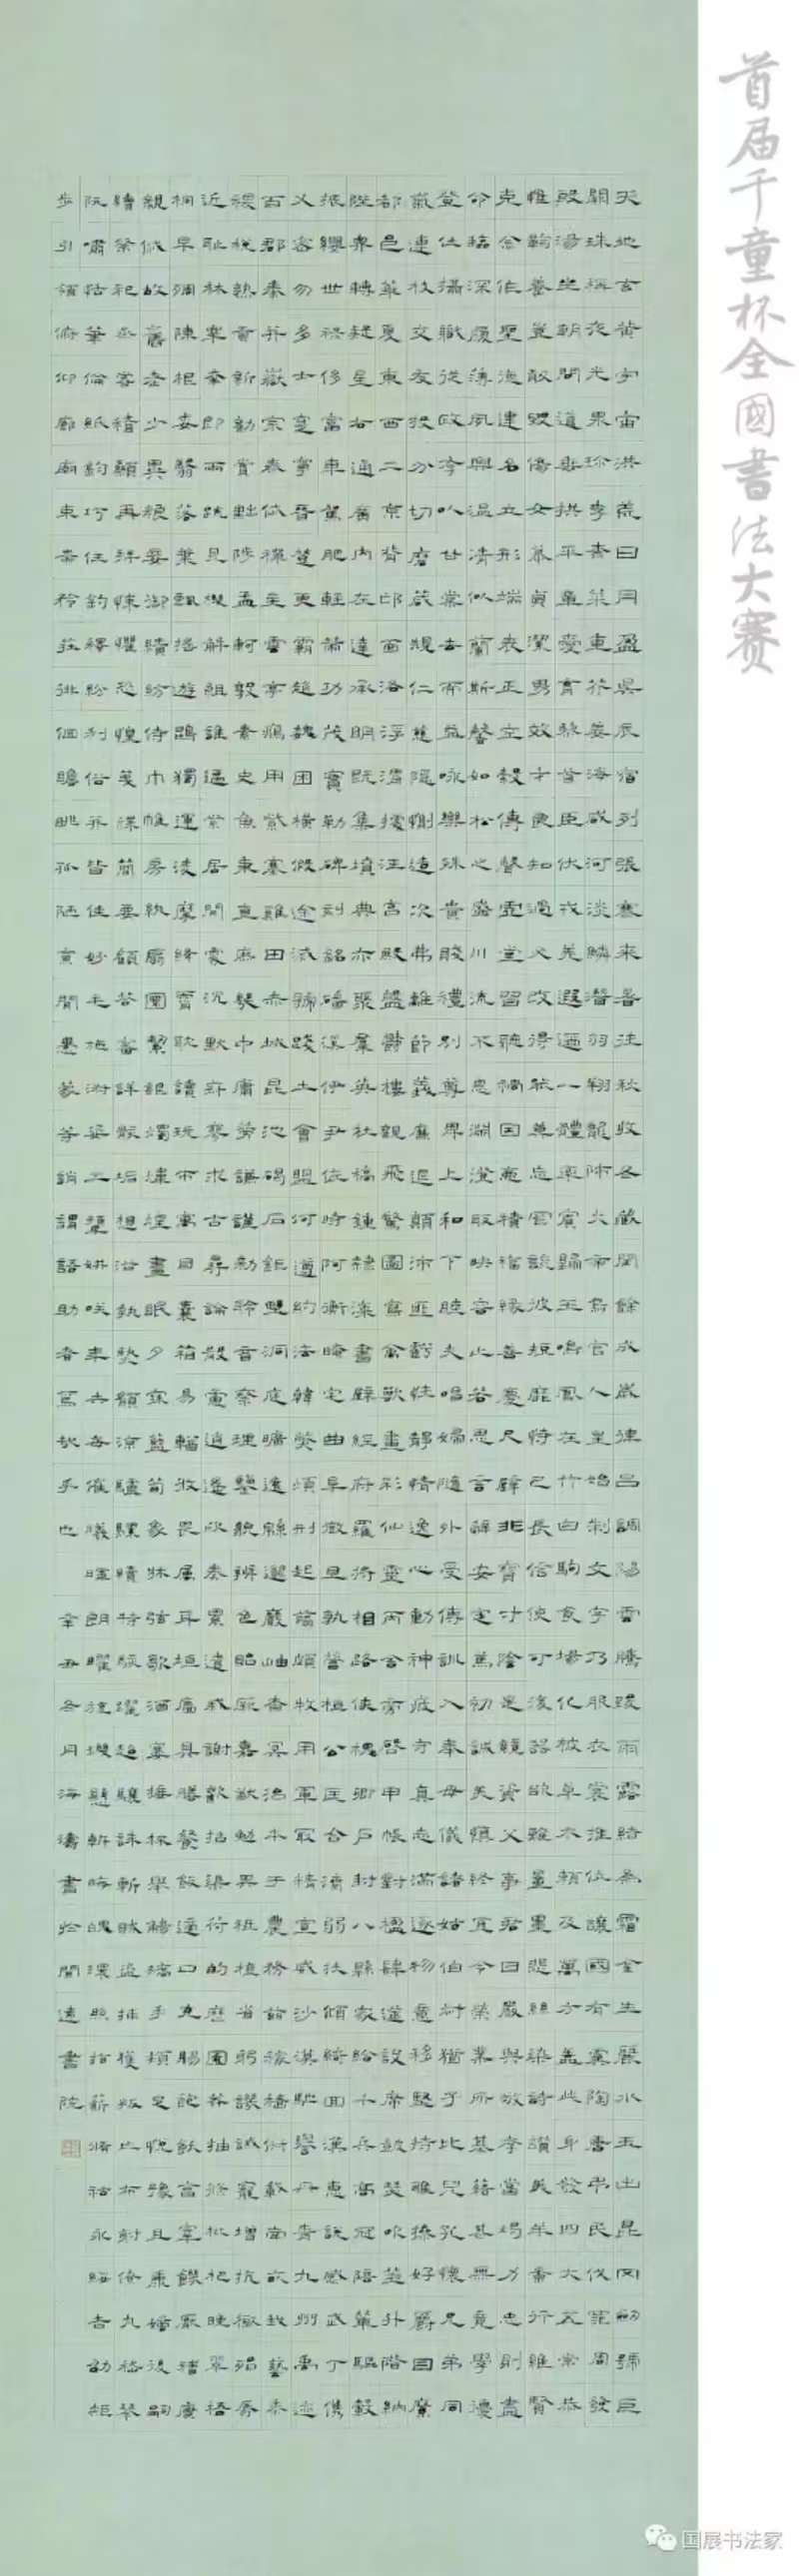 首届千童杯全國書法大赛
天地玄黄宇宙洪荒日月盈昃辰宿列張寒來暑往秋收冬藏閏餘成歲律呂調陽雲騰致雨露結為霜金生麗水玉出昆冈劍號巨
闕珠稱夜光果珍李柰菜重芥薑海鹹河淡鱗潛羽翔龍師火帝鳥官人皇始制文字乃服衣裳推位讓國有虞陶唐弔民伐罪周發
殷湯坐朝問道垂拱平章愛育黎首臣伏戎羌遐邇一體率賓歸王鳴鳳在竹白駒食場化被草木賴及萬方蓋此身髮四大五常恭
惟鞠養豈敢毀傷女慕貞潔男效才良知過必改得能莫忘罔談彼短靡恃己長信使可覆器欲難量墨悲絲染詩讚羔羊景行維賢
克念作聖德建名立形端表正空谷傳聲虛堂習聽禍因惡積福緣善慶尺璧非寶寸陰是競資父事君曰嚴與敬孝當竭力忠則盡
命臨深履薄夙興溫凊似蘭斯馨如松之盛川流不息淵澄取映容止若思言辭安定篤初誠美慎終宜令榮業所基藉甚無竟學優
登仕攝職從政存以甘棠去而益詠樂殊貴賤禮別尊卑上和下睦夫唱婦隨外受傅訓入奉母儀諸姑伯叔猶子比兒孔懷兄弟同
氣連枝交友投分切磨箴規仁慈隱惻造次弗離節義廉退顛沛匪虧性靜情逸心動神疲守真志滿逐物意移堅持雅操好爵自縻
都邑華夏東西二京背邙面洛浮渭據涇宮殿盤鬱樓觀飛驚圖寫禽獸畫彩仙靈丙舍傍啟甲帳對楹肆筵設席鼓瑟吹笙升階納
陛弁轉疑星右通廣內左達承明既集墳典亦聚群英杜稿鍾隸漆書壁經府羅將相路俠槐卿戶封八縣家給千兵高冠陪輦驅轂
振纓世祿侈富車駕肥輕策功茂實勒碑刻銘磻溪伊尹佐時阿衡奄宅曲阜微旦孰營桓公匡合濟弱扶傾綺回漢惠說感武丁俊
乂密勿多士寔寧晉楚更霸趙魏困橫假途滅虢踐土會盟何遵約法韓弊煩刑起翦頗牧用軍最精宣威沙漠馳譽丹青九州禹跡
百郡秦并嶽宗泰岱禪主雲亭雁用紫塞雞田赤城昆池碣石鉅野洞庭曠遠綿邈巖岫杳冥治本于農務茲稼穡俶載南畝我藝黍
稷稅熟貢新勸賞黜陟孟軻敦素史魚秉直庶幾中庸勞謙謹敕聆音察理鑒貌辨色貽厥嘉猷勉其祗植省躬譏誡寵增抗極殆辱
近恥林皋幸即兩疏見機解組誰逼索居閒處沉默寂寥求古尋論散慮逍遙欣奏累遣慼謝歡招渠荷的歷園莽抽條枇杷晚翠梧
桐早凋陳根委翳落葉飄颻遊鵾獨運凌摩絳霄耽讀玩市寓目囊箱易輶攸畏屬耳垣牆具膳餐飯適口充腸飽飫烹宰飢厭糟糠
親戚故舊老少異糧妾御績紡侍巾帷房紈扇圓潔銀燭煒煌晝眠夕寐藍筍象床弦歌酒讌接杯舉觴矯手頓足悅豫且康嫡後嗣
續祭祀烝嘗稽顙再拜悚懼恐惶箋牒簡要顧答審詳骸垢想浴執熱願涼驢騾犢特駭躍超驤誅斬賊盜捕獲叛亡布射僚丸嵇琴
阮嘯恬筆倫紙鈞巧任釣釋紛利俗並皆佳妙毛施淑姿工顰妍笑年矢每催曦暉朗曜璇璣懸斡晦魄環照指薪修祜永綏吉劭矩
步引領俯仰廊廟束帶矜莊徘徊瞻眺孤陋寡聞愚蒙等誚謂語助者焉哉乎也 辛丑冬月海濤書於閒遠書院
国展书法家